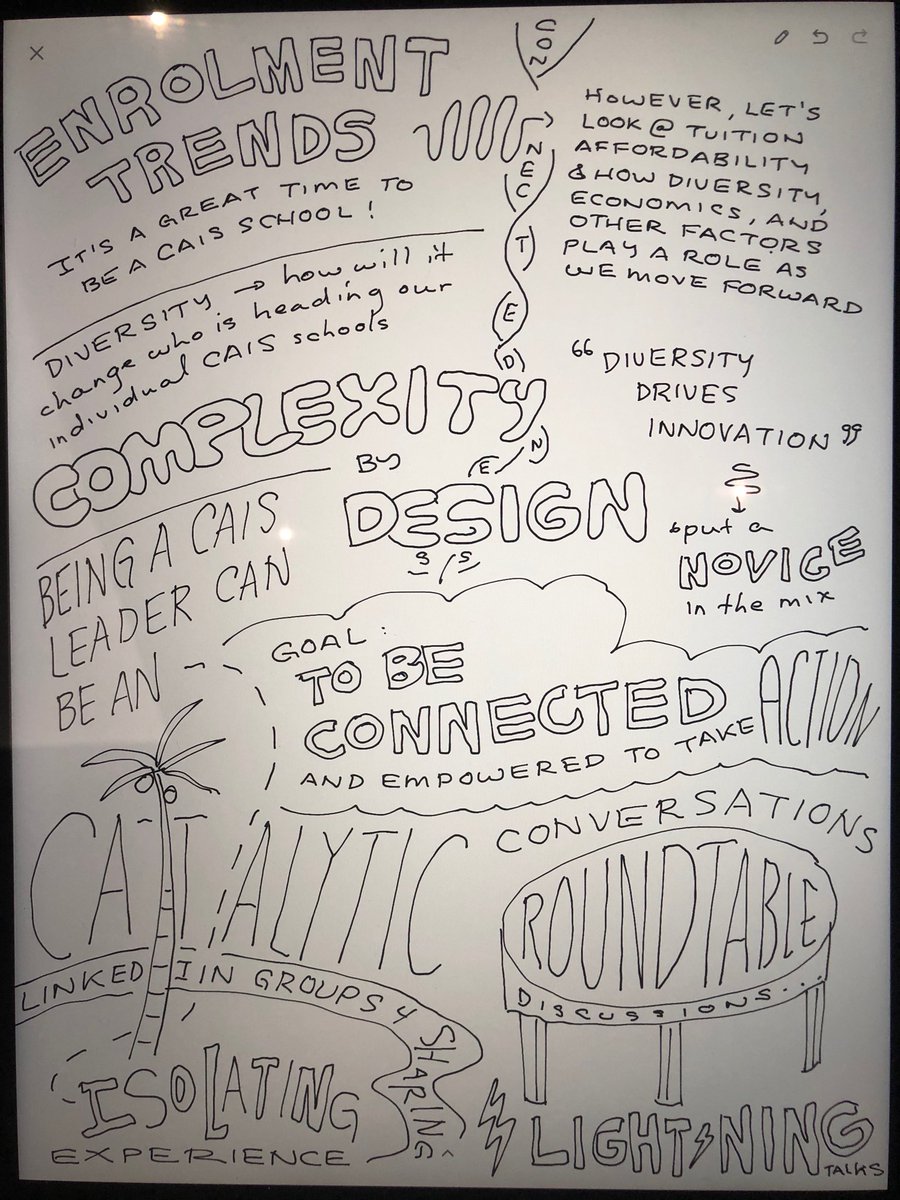 ENROLMENT
TRENDS
IT'S A GREAT TIME TO
BE A CAIS SCHOOL!
CON
N
E
C
T
E
D
N
E
S
S
HOWEVER, LET'S
LOOK @ TUITION
AFFORDABILITY
& HOW DIVERSITY,
ECONOMICS, AND
OTHER FACTORS
PLAY A ROLE AS
WE MOVE FORWARD
DIVERSITY → how will it
change who is heading our
individual CAIS schools
COMPLEXITY
BY
DESIGN
“DIVERSITY
DRIVES
INNOVATION”
put a
NOVICE
in the mix
BEING A CAIS
LEADER CAN
BE AN
GOAL:
TO BE
CONNECTED
AND EMPOWERED TO TAKE ACTION
CATALYTIC
CONVERSATIONS
ROUNDTABLE
DISCUSSIONS...
LINKED IN GROUPS 4
SHARING
ISOLATING
EXPERIENCE
LIGHTNING
TALKS